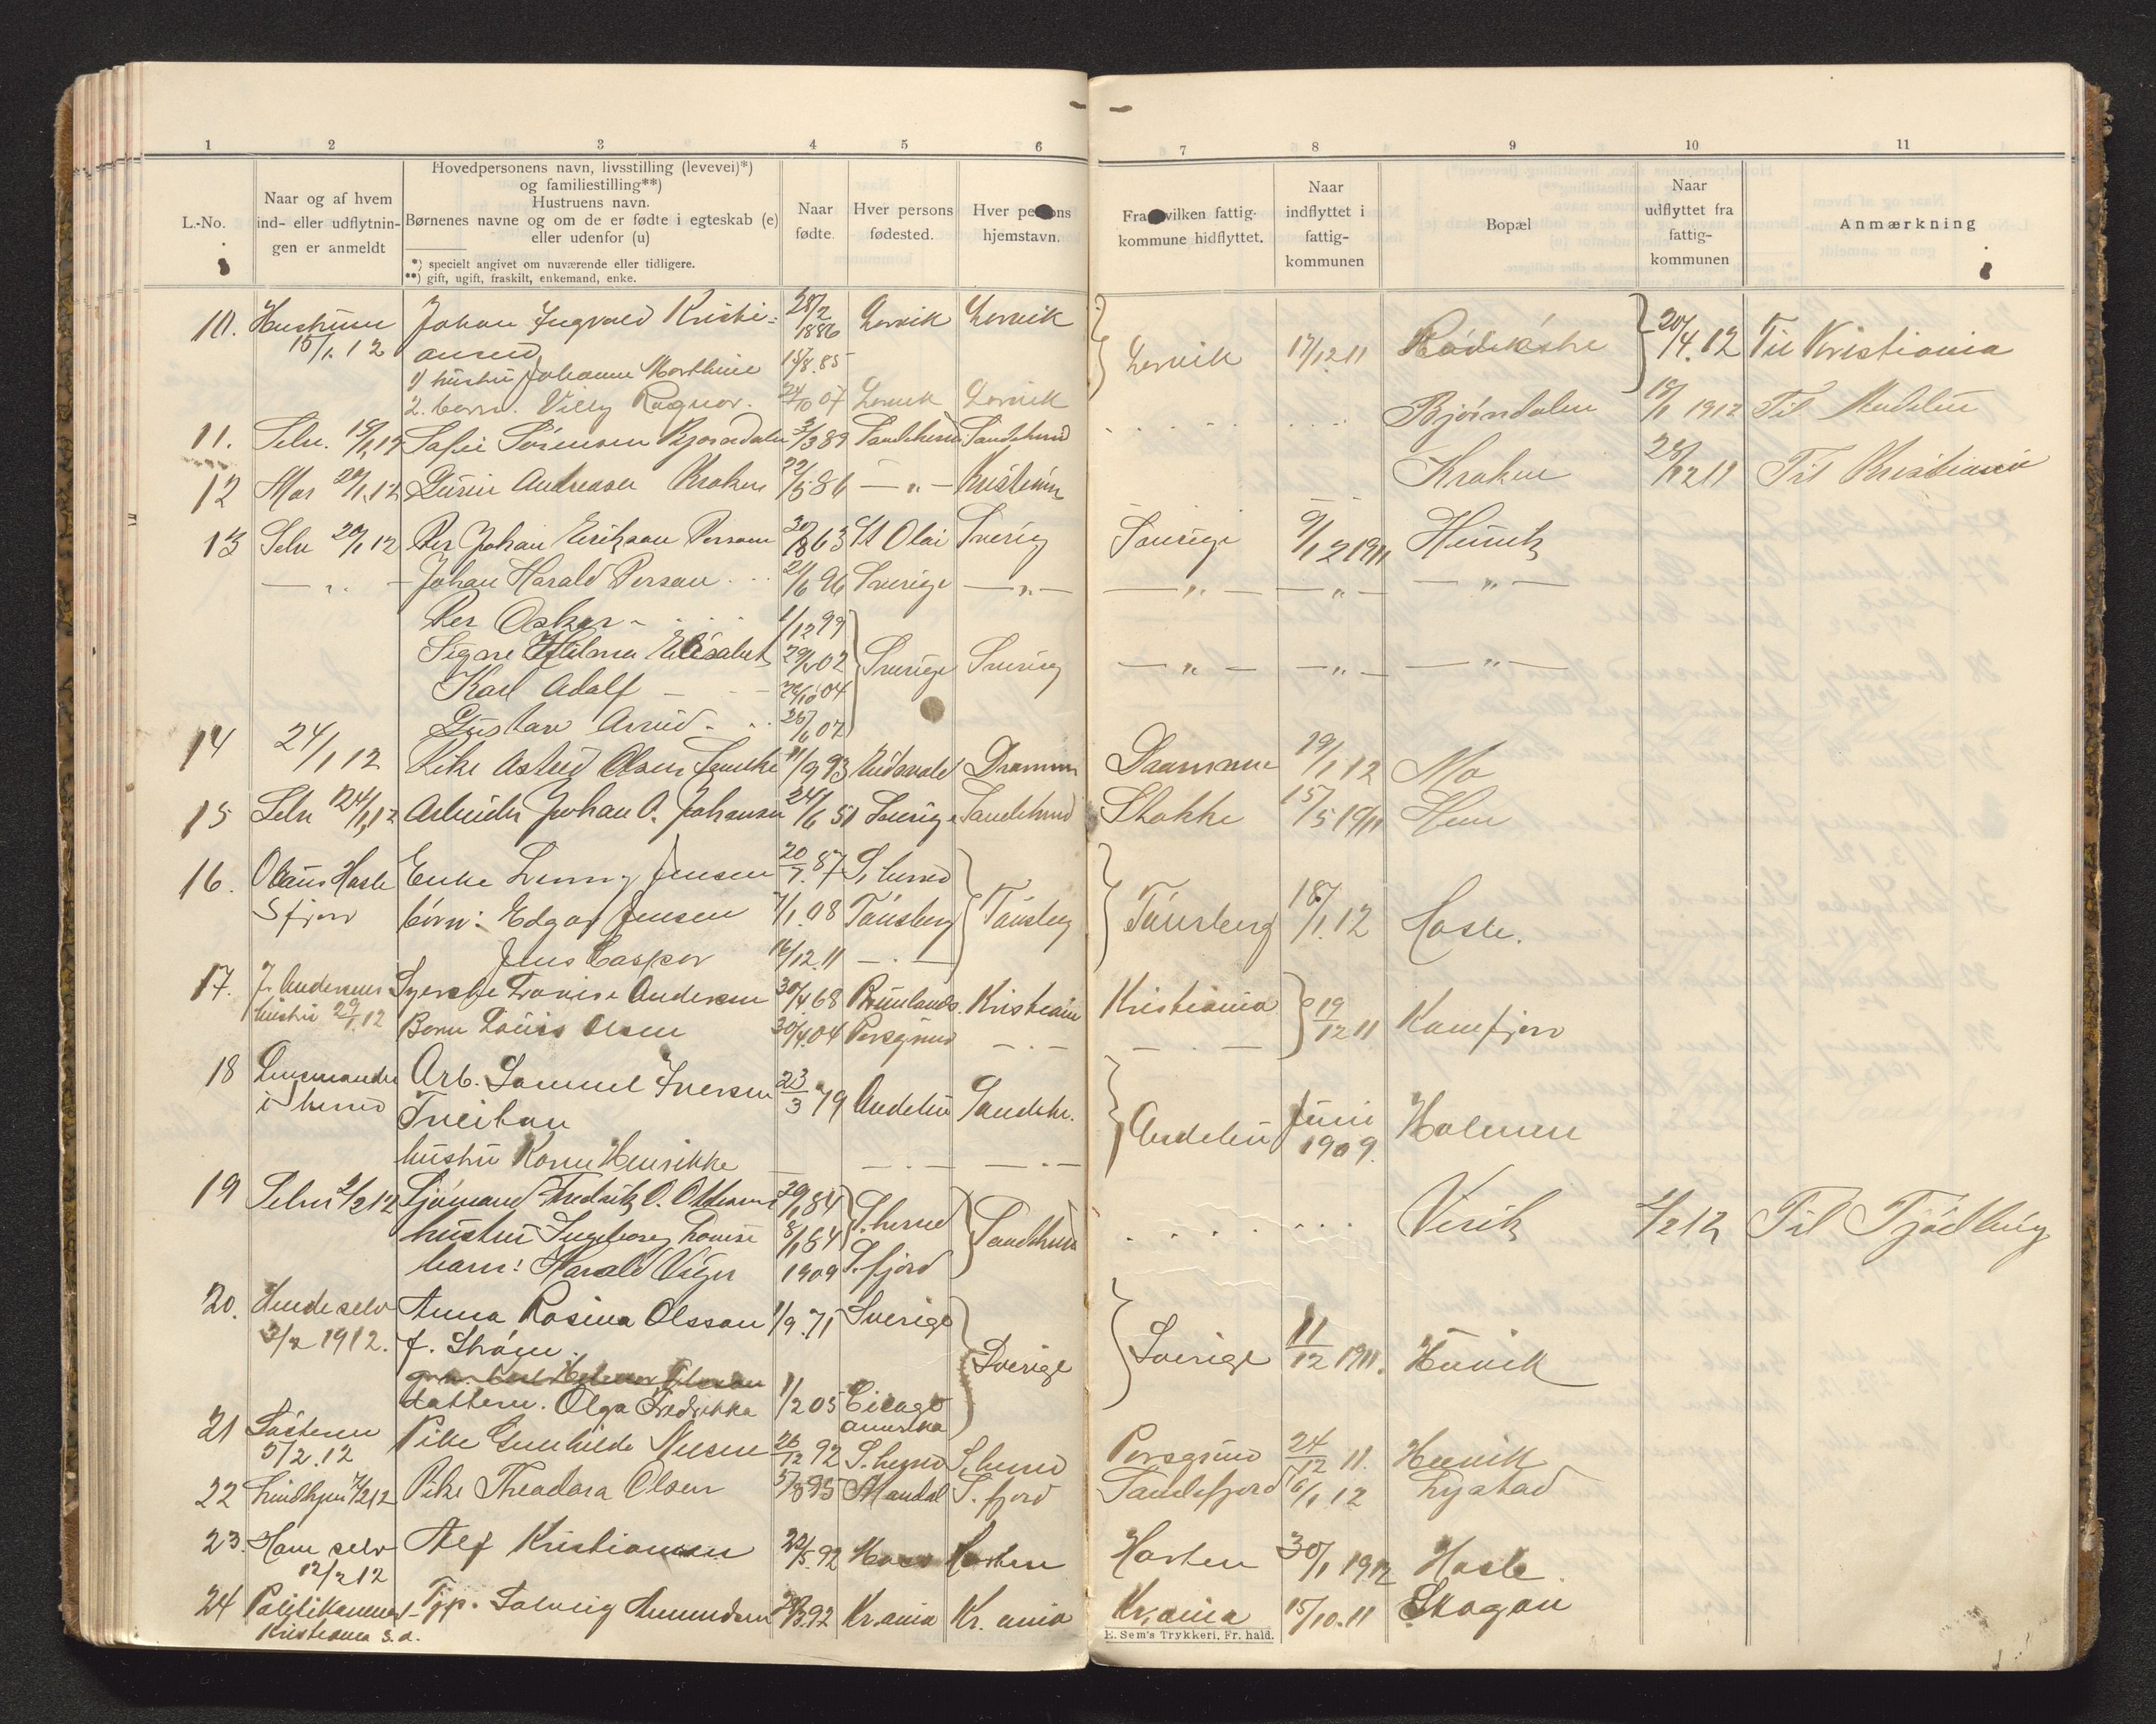 1 2 3 4 5 6 7 8 9 10 11
L.-No.
Naar og af hvem
ind- eller udflytnin-
gen er anmeldt
Hovedpersonens navn, livsstilling (levevei)*)
og familiestilling**)
Hustruens navn.
Børnenes navne og om de er fødte i egteskab (e)
eller udenfor (u)
*) specielt angivet om nuværende eller tidligere.
**) gift, ugift, fraskilt, enkemand, enke.
Naar
fødte.
Hver persons
fødested.
Hver persons
hjemstavn.
Fra hvilken fattig-
kommune hidflyttet.
Naar
indflyttet i
fattig-
kommunen
Bopæl
Naar
udflyttet fra
fattig-
kommunen
Anmærkning
10. Johan Ingvald Kristi- 28/2 1886 Larvik Larvik
15/1.12 ansen Larvik 17/12 11 20/4.12 Til Kristiania
1) hustru Johanne Marthine 15/8.85
2. barn. Villy Ragnar. 24/10 07 Larvik Larvik
11. Selv. 18/1,12 Sofie Sørensen Bjørndalen 3/3 89 Sandeherred Sandeherred Bjørndalen 18/1 1912 Til Andebu
12 Mor 20/1.12 Andreasen Kraken 22/5 86 — „ — Kristiania Kraken 28/12 11 Til Kristiania
13 Selv 20/1 12 Per Johan Erikson Person 30/8 63 St Olai Sverig Sverige 9/12 1911 Hunvik
— „ — Johan Harald Person 21/6 96 Sverige — „ — — „ — — „ — — „ —
Per Oskar 1/12 99
Signe Hilma Elisabet 29/1 02 Sverige Sverig — „ — — „ — — „ —
Karl Adolf 04
Gustav Arvid 26/6 07
14 24/1 12 Pike Astrid Olsen 11/9 93 Eidsvold Drammen Drammen 19/1 12 Mo
15 Selv 24/1,12 Arbeider Johan A. Johansen 24/6 51 Sverige Sandeherred Stokke 15/5 1911 Hem
16. Olaus Hasle Enke Jensen 20/7.87 S. herred
Sfjord børn: Edgar Jensen 7/1.08 Tønsberg Tønsberg Tønsberg 18/1.12 Hasle.
Jens Casper 16/12.11 — . —
17. J. Andersens Syerske Lovise Andersen 30/4.68 Brunlanes. Kristiania Kristiania 19/12 11 Kamfjord
hustru 29/1.12 Barn Louis Olsen 30/4.04 Porsgrund — . — — . —
18 Lensmanden Arb. Samuel Iversen 23/3 79 Andebu Sandehr. Andebu Juni 1909. Holmen
i herred Tveitan
hustru Karen Henrikke — — . — — . —
19 Selv 2/2 12 Sjømand Fredrik O. Othans 29/1 84 S. herred Sandeherred Virik 2/2 12 Til Tjødling
hustru Ingeborg Lovise 8/1 84
barn: Harald Viger 1909 S. fjord
20. Hende selv Anna Rosina Olsson 1/9.71 Sverige Sverige Sverige 11/12 1911. Hunvik
3/2 1912. f. Strøm.
datteren. Olga Fredrikka 1/2 05 Cicago
amerika
21 Søsteren Pike Gunhilde Nilsen 26/12 92 S. herred S. herred Porsgrund 24/12 11. Hunvik
5/2.12
22 Lindhjem 7/2 12 Pike Theodora Olsen 5/8 95 Mandal S. fjord Sandefjord 6/1 12 Nystad
23. Ham selv Alf Kristiansen 22/5.92 Horten Horten 30/1 1912 Hasle.
12/2 12
24 Politikammer Tjp. Solveig Amundsen 92 Kr.ania Kr. ania Kr.ania 15/10.11 Skogan
Kristiania s.a.
E. Sem's Trykkeri, Fr. hald.